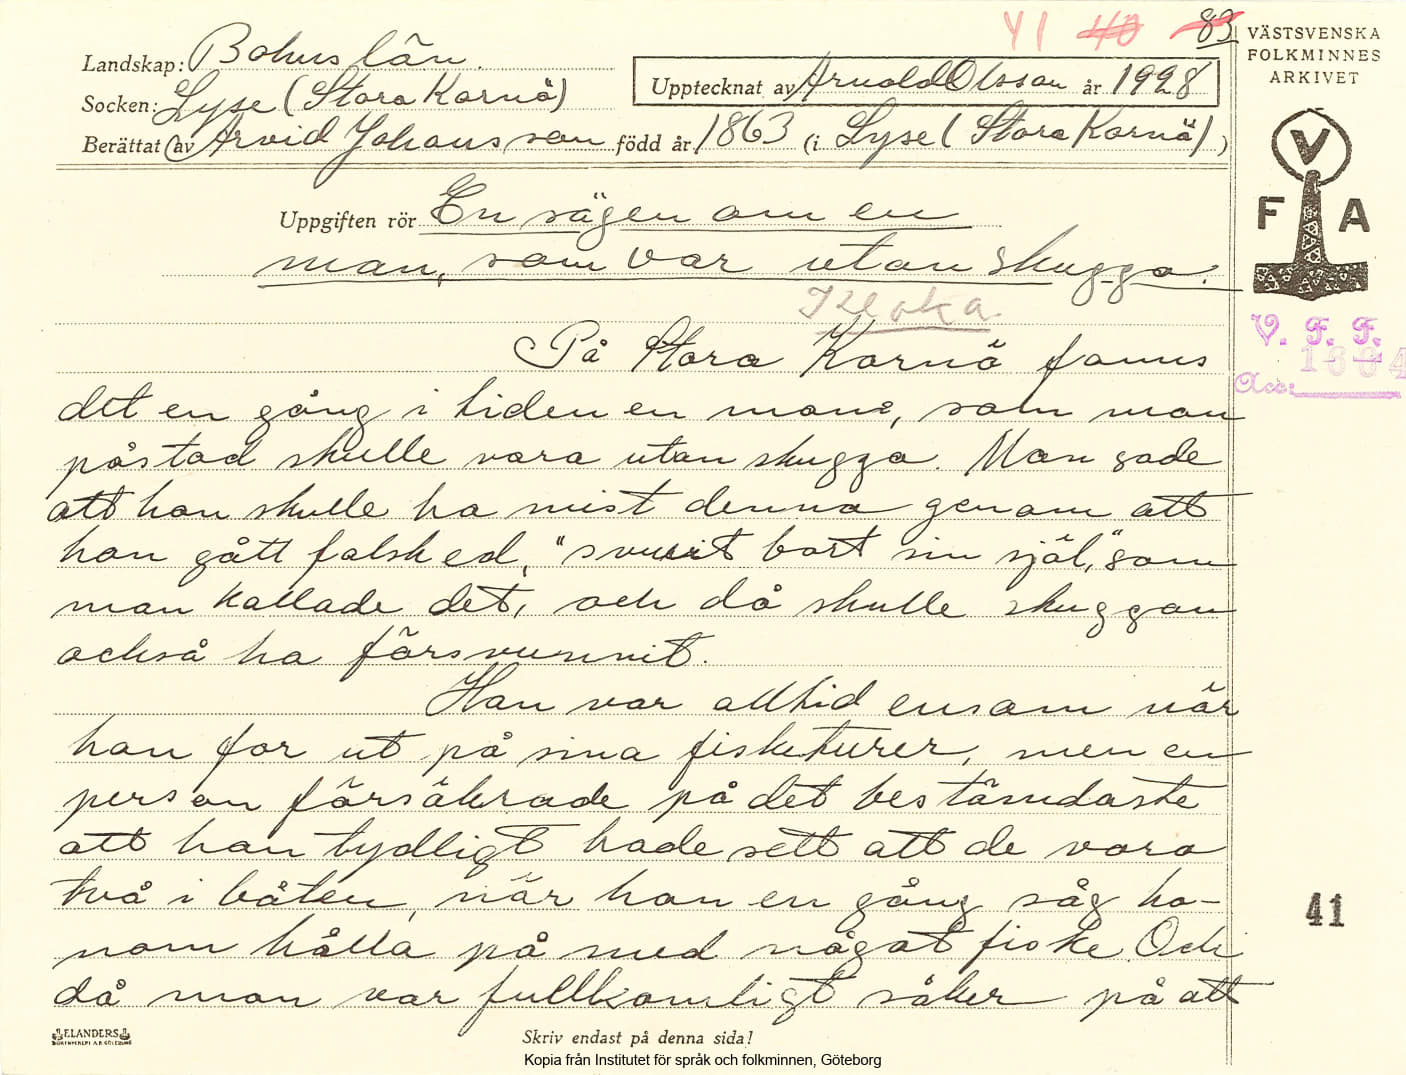 Y1 40 83
VÄSTSVENSKA
FOLKMINNES
ARKIVET
Landskap: Bohuslän.
Upptecknat av Arnold Olsson år 1928
Socken: Lyse (Stora Kornö)
Berättat av Arvid Johansson född år 1863 (i Lyse (Stora Kornö) )
Uppgiften rör En sägen om en
man, som var utan skugga.
Kloka.
V
F A
V. F. F.
Acc: 1664
På Stora Kornö fanns
det en gång i tiden en man, som man
påstod skulle vara utan skugga. Man sade
att han skulle ha mist denna genom att
han gått falsk ed, "svurit bort sin själ," som
man kallade det, och då skulle skuggan
också ha försvunnit.
Han var alltid ensam när
han for ut på sina fisketurer, men en
person försäkrade på det bestämdaste
att han tydligt hade sett att de voro
två i båten, när han en gång såg ho-
nom hålla på med något fiske. Och
då man var fullkomligt säker på att
41
ELANDERS
BOKTRYCKERI A.B. GÖTEBORG
Skriv endast på denna sida!
Kopia från Institutet för språk och folkminnen, Göteborg